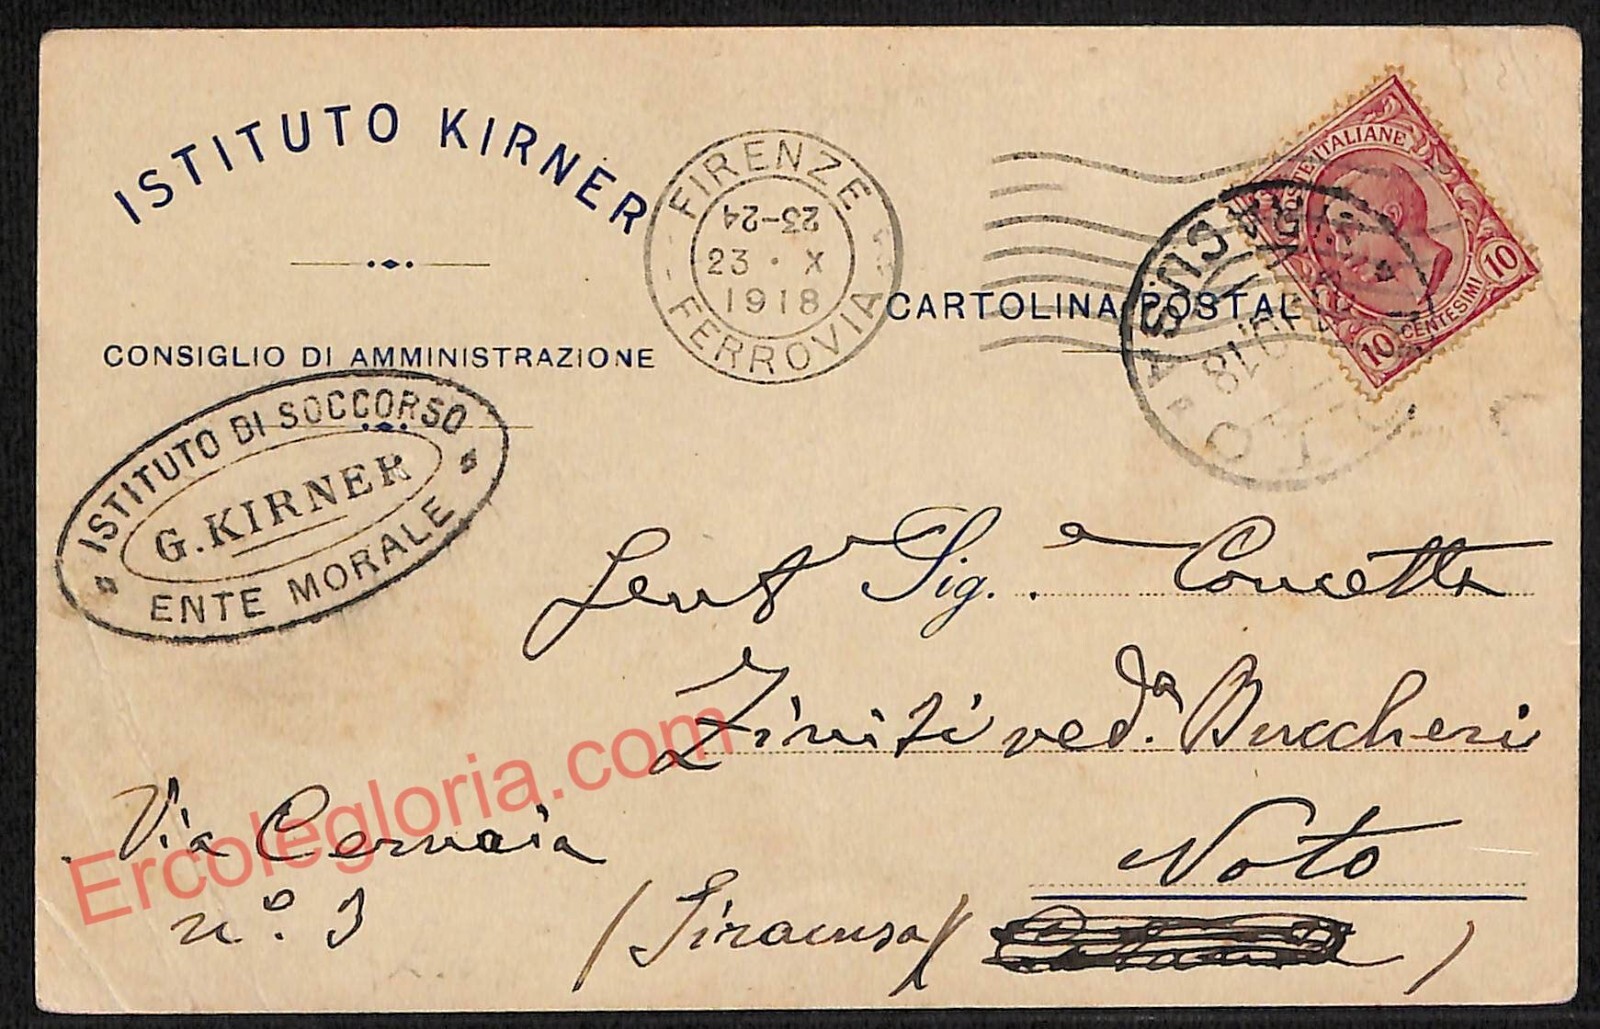 ISTITUTO KIRNER
CONSIGLIO DI AMMINISTRAZIONE
ISTITUTO DI SOCCORSO
G. KIRNER
ENTE MORALE
FIRENZE
23-24
23 · X
1918
FERROVIA
CARTOLINA POSTAL
POSTE ITALIANE
10 CENTESIMI 10
SIRACUSA
NOTO
18
Gent Sig.a Concetta
Ziniti ved.a Buccheri
Noto
(Siracusa)
Via Cernaia
n.o 3
Ercolegloria.com